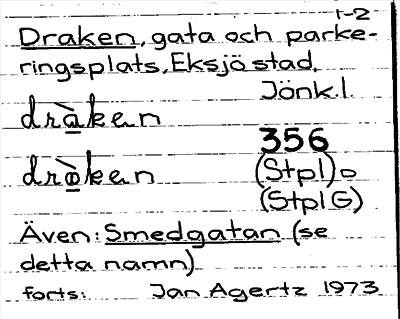 1-2
Draken, gata och parke-
ringsplats, Eksjö stad,
Jönk.l.
dràken
356
dròken (Stpl) o
(StplG)
Även: Smedgatan (se
detta namn)
forts: Jan Agertz 1973